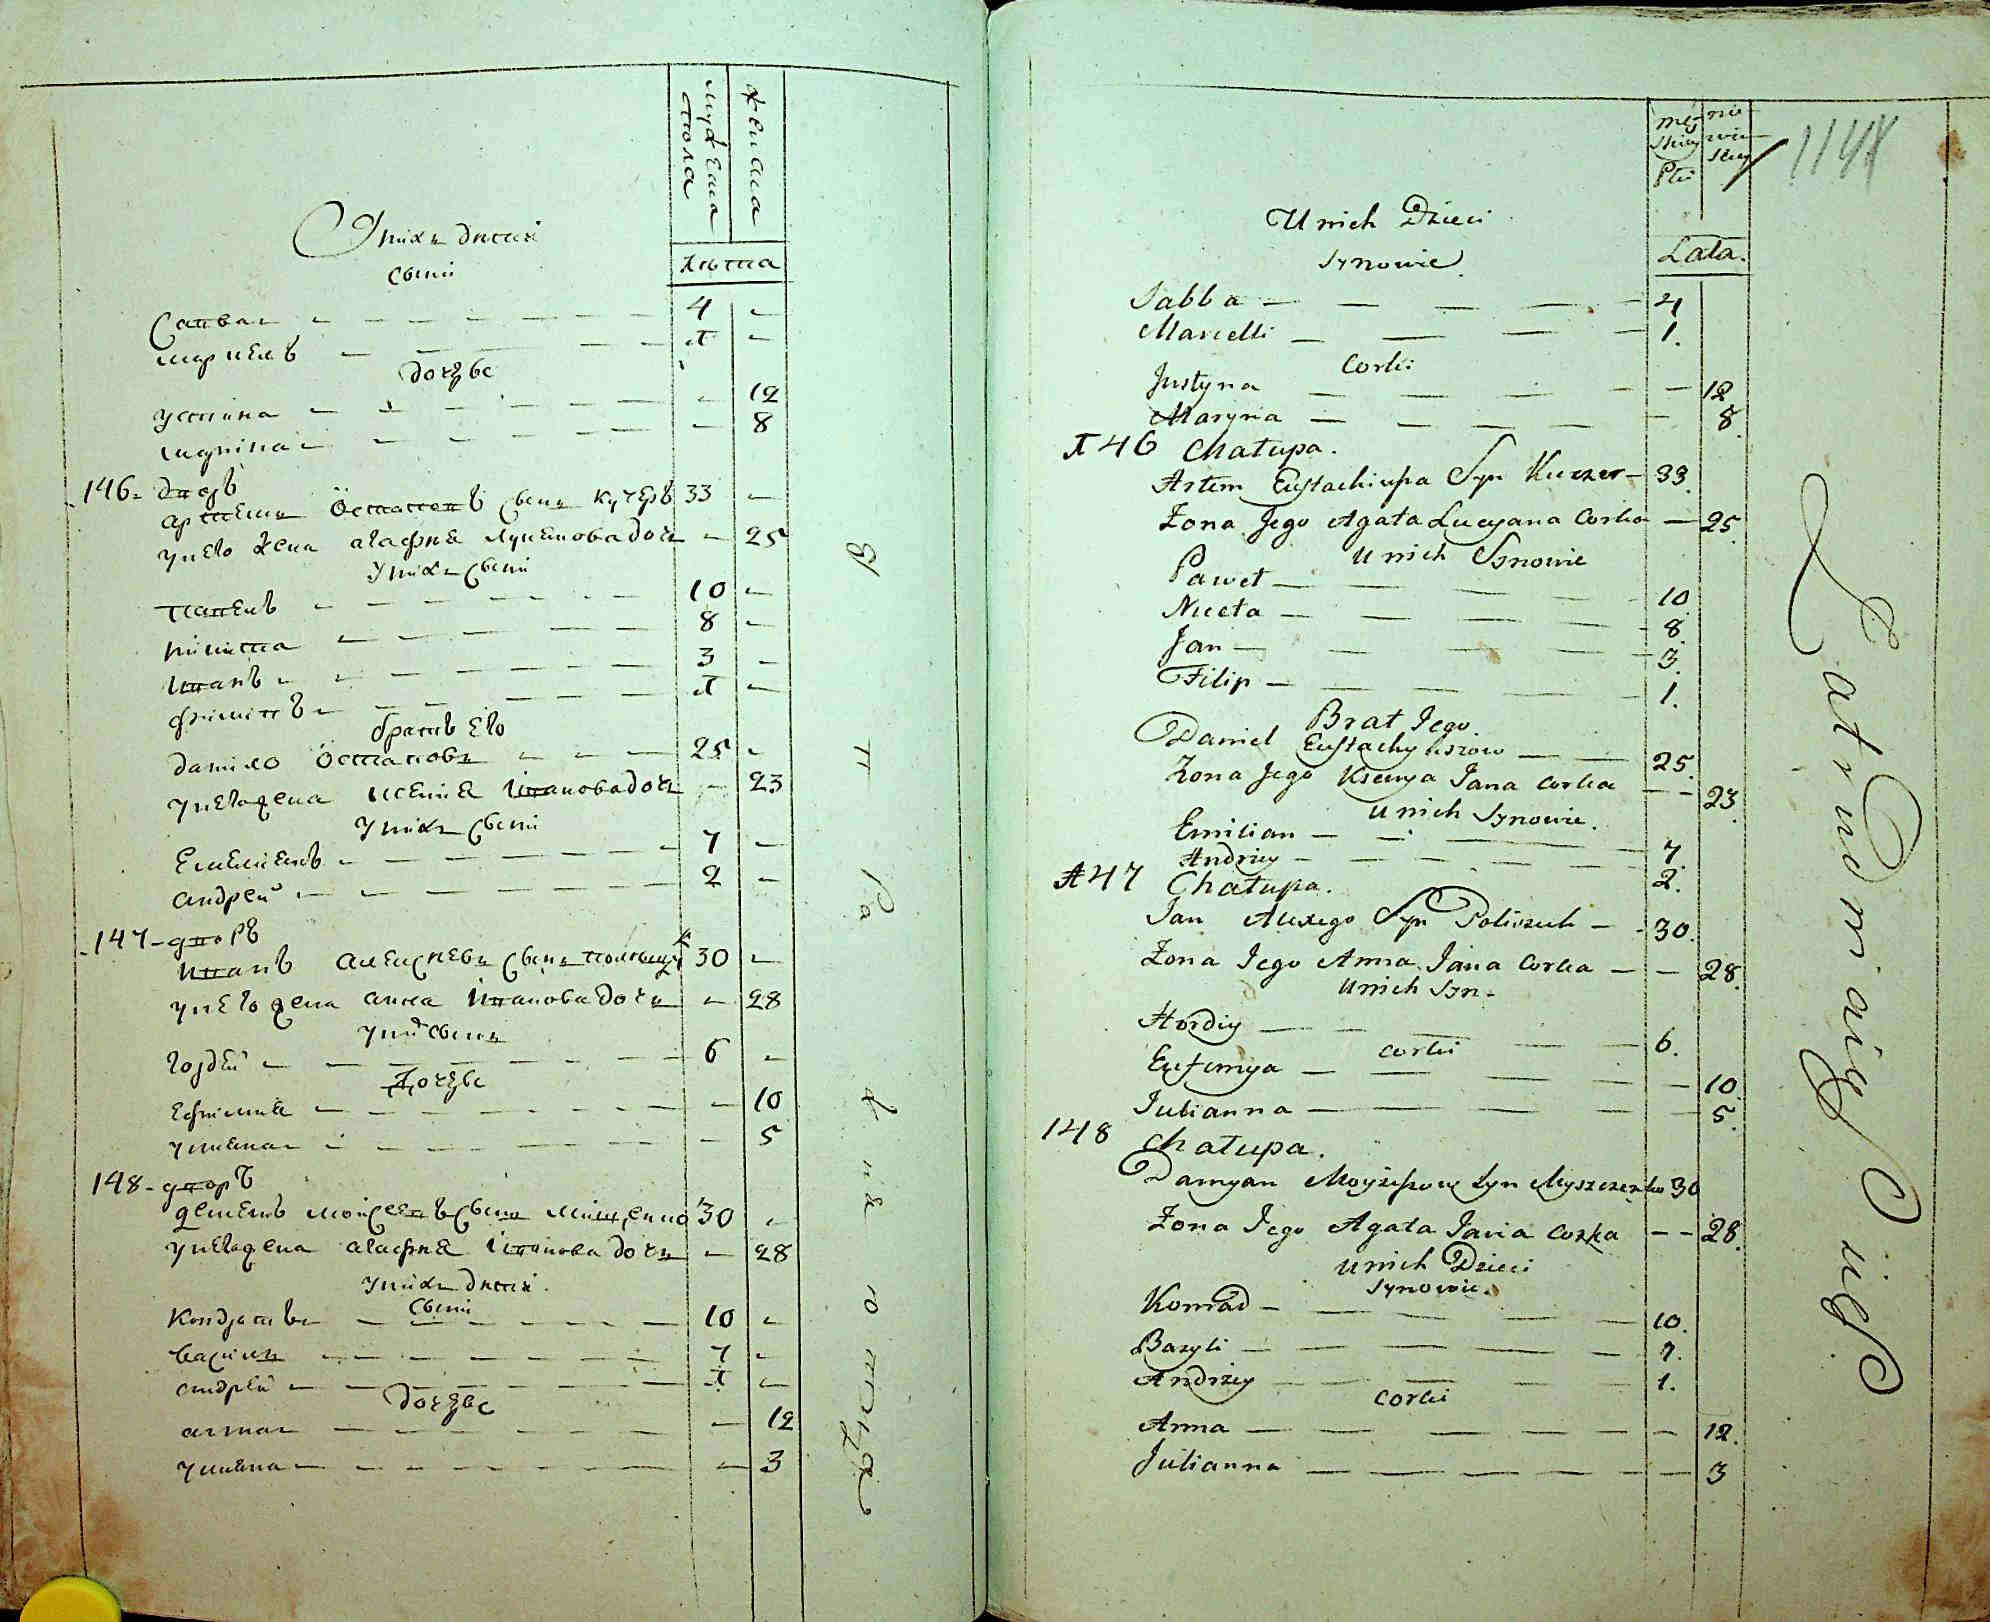 мужеска пола
женска
У нихъ дѣтей
сыни
Лѣта
Савва 4
марцелъ 1
дочерѣ
устина 12
марина 8
146 дворъ
артемъ Остаповъ сынъ кучеръ 33
у него жена агафія лукянова дочь 25
У нихъ сыни
павелъ 10
никита 8
иванъ 3
филипъ 1
братъ его
данило Остаповъ 25
у него жена ксенія Иванова дочь 23
У нихъ сыни
Емелиянъ 7
андрей 2
147 дворъ
иванъ алексѣевъ сынъ 30
у него жена анна Иванова дочь 28
у них сынъ
гордей 6
Дочерѣ
ефимия 10
улияна 5
148 дворъ
демянъ мойсеевъ сынъ мищенко 30
у него жена агафия Іванова дочь 28
у нихъ дѣтей
сыни
кондратъ 10
василь 7
андрей 1
дочерѣ
анна 12
улияна 3
męskiey Płci
niewieskiey
1147
U nich Dzieci
Synowie
Lata.
Sabba 4
Marcelli 1.
Corki
Justyna 12
Maryna 8.
146 Chałupa.
Artem Eustachiusza Syn Kuczer 33.
Zona Jego Agata Lucyana Corka 25.
U nich Synowie
Paweł 10.
Niceta 8.
Jan 3.
Filip 1.
Brat Jego
Daniel Eustachyuszow 25.
Zona Jego Ksenya Jana Corka 23.
U nich Synowie.
Emilian 7.
Andrzey 2.
147 Chałupa.
Jan Alexego Syn Poliszuk 30.
Zona Jego Anna Jana Corka 28.
U nich Syn
Hordiy 6.
Corki
Eufimya 10.
Julianna 5.
148 Chałupa.
Damyan Moyżeszow Syn Myszczenko 30
Zona Jego Agata Jana Corka 28.
U nich Dzieci
Synowie.
Konrad 10.
Bazyli 7.
Andrzey 1.
Corki
Anna 12.
Julianna 3